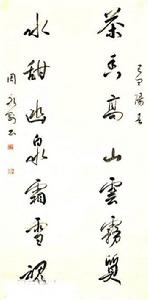 茶香高山雲霧質
水甜幽泉霜雪魂